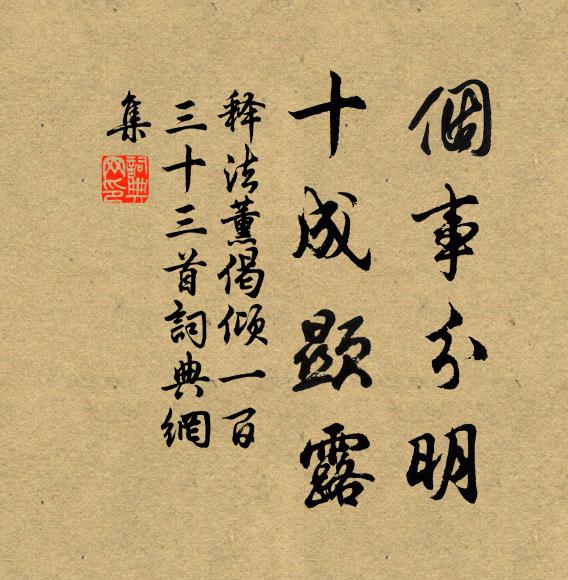 個事分明
十成顯露
释法薰偈倾一百
三十三首詞典網
集
詞典網印